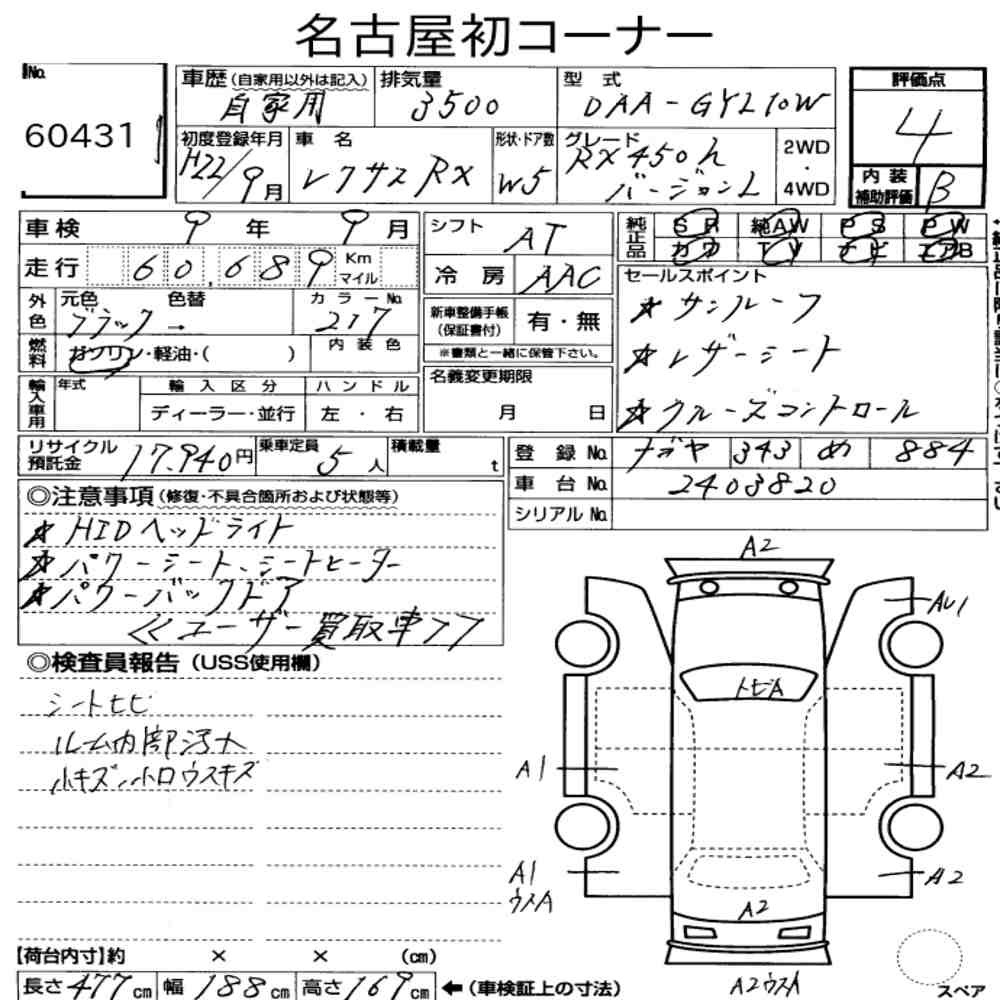 名古屋初コーナー
No.
60431
車歴(自家用以外は記入)
自家用
排気量
3500
型 式
DAA-GYL10W
評価点
4
初度登録年月
H22/9月
車 名
レクサス RX
形状・ドア数
W5
グレード
RX450h
バージョンL
2WD
・
4WD
内 装
補助評価
B
車検 9 年 9 月
走行 60,689 Km
マイル
シフト AT
冷 房 AAC
純正品
SR 純AW PS PW
カワ TV ナビ エアB
セールスポイント
★サンルーフ
★レザーシート
★クルーズコントロール
外色
元色 色替
ブラック→
カラーNo.
217
燃料
ガソリン・軽油・( )
内装色
新車整備手帳
(保証書付)
有・無
※書類と一緒に保管下さい。
輸入車用
年式
輸入区分
ディーラー・並行
ハンドル
左 ・ 右
名義変更期限
月 日
リサイクル
預託金
17,940円
乗車定員
5人
積載量
t
登 録 No. ナゴヤ 343 め 884
車 台 No. 2403820
シリアル No.
◎注意事項(修復・不具合箇所および状態等)
★HIDヘッドライト
★パワーシート、シートヒーター
★パワーバックドア
<<ユーザー買取車>>
◎検査員報告(USS使用欄)
シートヒビ
ルーム内部汚大
小キズ 小ロウスキズ
A2
AU1
トビA
A1
A2
A1
ウスA
A2
A2
A2ウスA
スペア
【荷台内寸】約 × × (cm)
長さ 477cm 幅 188cm 高さ 169cm ←(車検証上の寸法)